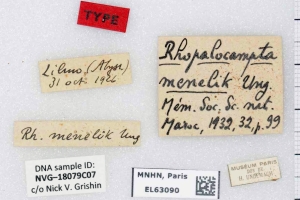 TYPE
Rhopalocampta
menelik Ung.
Mém. Soc. Sc. nat.
Maroc, 1932, 32, p. 99
(Abyss)
31 oct. 1926
Rh. menelik Ung
DNA sample ID:
NVG–18079C07
c/o Nick V. Grishin
MNHN, Paris
EL63090
MUSEUM PARIS